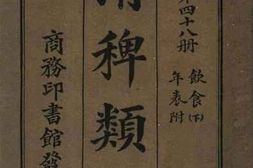 第四十八册
飲食(下)
年表附
清稗類
商務印書館發